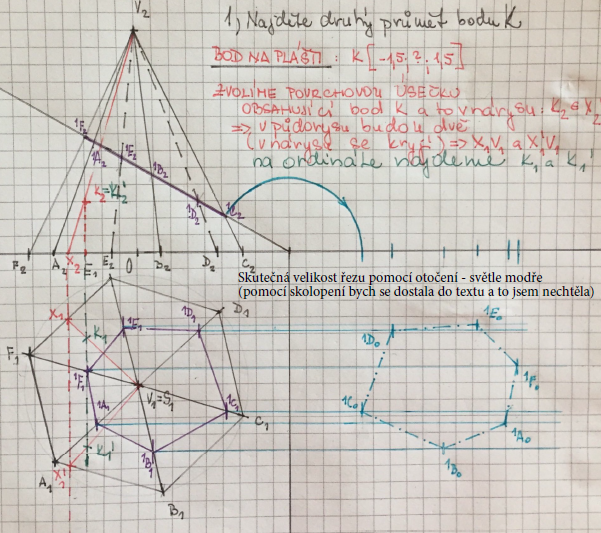 V₂
1, Najděte druhý průmět bodu K
BOD NA PLÁŠTI: K[-1,5; ?; 1,5]
ZVOLÍME POVRCHOVOU ÚSEČKU
OBSAHUJÍCÍ bod K a to v nárysu: K₂ ∈ X₂
⇒ v půdorysu budou dvě
(v nárysu se kryjí) ⇒ X₁V₁ a X₁'V₁
na ordinále najdeme K₁ a K₁'
¹F₂
¹A₂
¹E₂
¹B₂
K₂=K₂'
¹D₂
¹C₂
F₂ A₂ X₂ E₂ O D₂ C₂
Skutečná velikost řezu pomocí otočení - světle modře
(pomocí skolopení bych se dostala do textu a to jsem nechtěla)
X₁ K₁ ¹E₁ ¹D₁ D₁
F₁ ¹F₁ V₁=S₁
¹A₁ ¹C₁ C₁
K₁' ¹B₁
A₁ X₁' B₁
¹D₀ ¹E₀
¹F₀
¹C₀
¹A₀
¹B₀